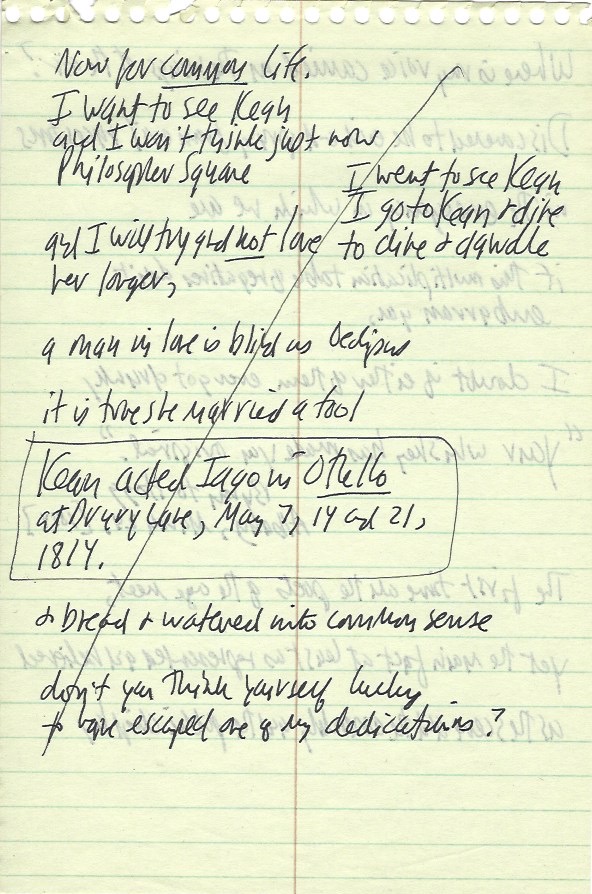 Now for common life.
I want to see Kean
and I won't think just now
Philosopher Square
I went to see Kean
I go to Kean & dine
to dine & dawdle
and I will try and not love
her longer,
a man in love is blind as Oedipus
it is true she married a fool
Kean acted Iago in Othello
at Drury Lane, May 7, 14 and 21,
1814.
& bread & watered into common sense
don't you think yourself lucky
to have escaped one of my dedications?